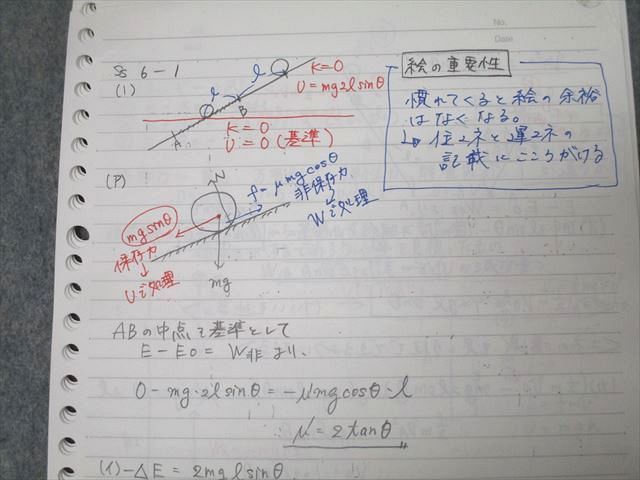 No.
Date
§ 6-1
(1)
l
l
K=0
U=mg2lsinθ
A
B
K=0
U=0(基準)
絵の重要性
慣れてくると絵の余裕
はなくなる。
↳位エネと運エネの
記載にこころがける
(ア)
N
f=μmgcosθ
非保存力
↓
Wで処理
mgsinθ
保存力
↓
Uで処理
mg
ABの中点を基準として
E-E0= W非 より、
0-mg・2lsinθ=-μmgcosθ・l
∴ μ=2tanθ
(イ)-ΔE=2mglsinθ